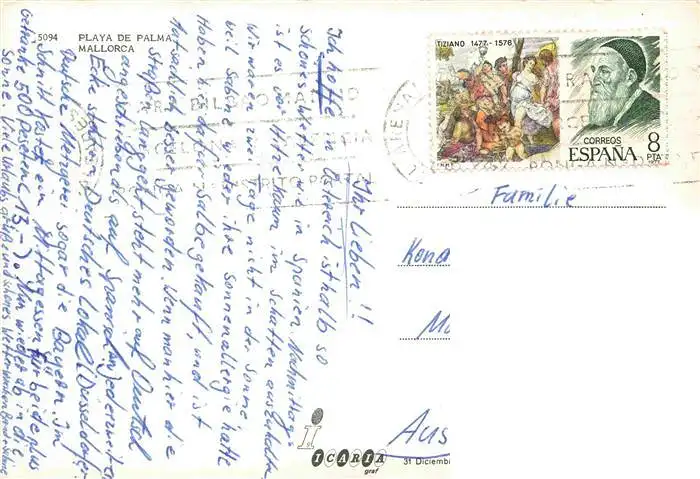 5094 PLAYA DE PALMA
MALLORCA
TIZIANO 1477-1576
CORREOS
ESPAÑA 8
PTA
Ihr Lieben!!
Ich hoffe in Österreich ist halb so
schönes Wetter wie in Spanien. Nachmittags
ist es vor Hitze kaum im Schatten auszuhalten
Wir waren zwei Tage nicht in der Sonne,
weil Sabine wieder ihre Sonnenallergie hatte
Haben hier dafür Salbe gekauft, und ist
tatsächlich besser geworden. Wenn man hier die
Straßen langgeht steht mehr auf Deutsch
angeschrieben als auf Spanisch. An jeder zweiten
Ecke stehen Deutsches Lokal (Düsseldorfer
Deutsche Metzgerei sogar die Bayern. Im
Schnitt kostet ein Mittagessen für beide plus
Getränke 500 Peseten (13,-). Nun wieder ab in die
Sonne. Viele Urlaubsgrüße und schönes Wetter wünschen
Familie
Kona
Aus
ICARIA
graf
31 Diciemb